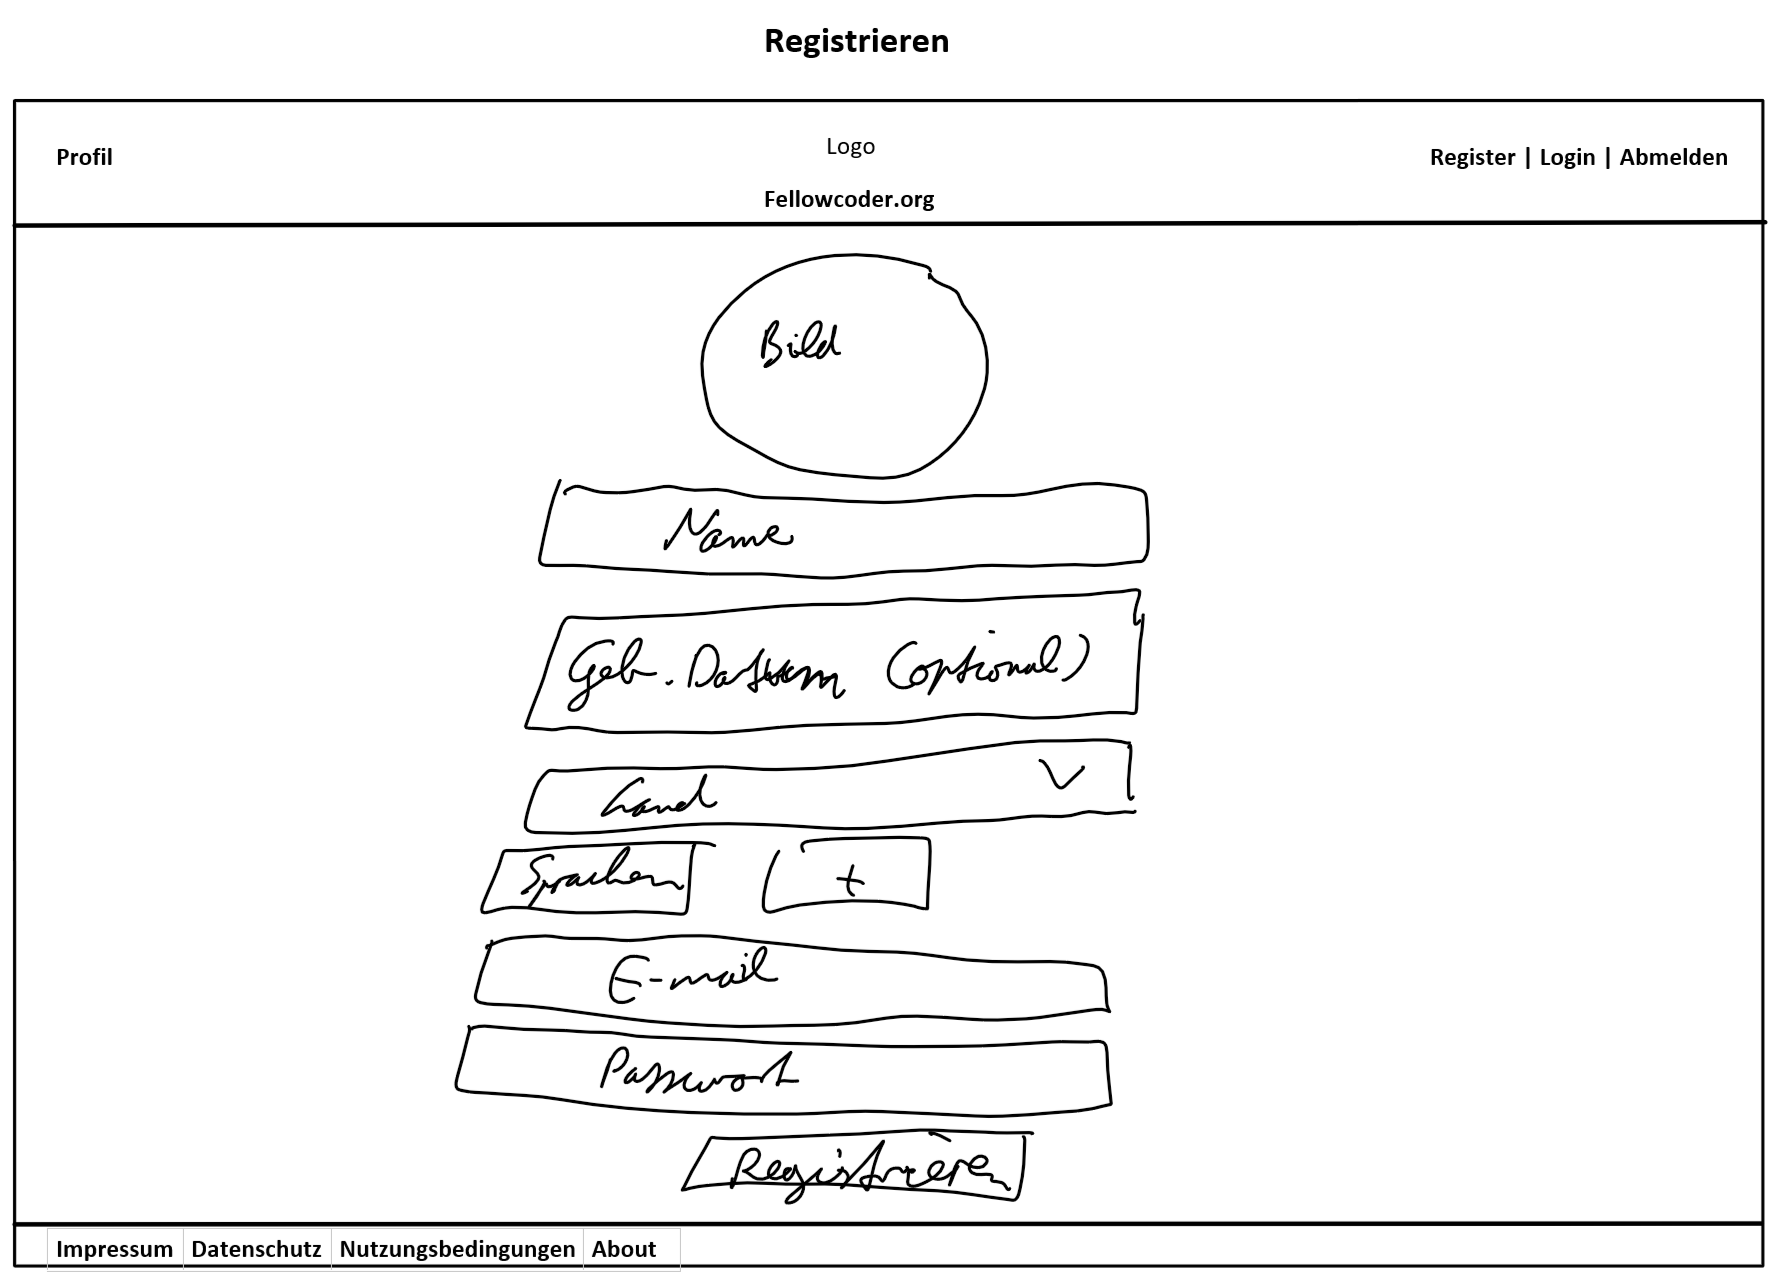 Registrieren
Profil
Logo
Register | Login | Abmelden
Fellowcoder.org
Bild
Name
Geb. Datum (optional)
Land
Sprachen +
E-mail
Passwort
Registrieren
Impressum Datenschutz Nutzungsbedingungen About